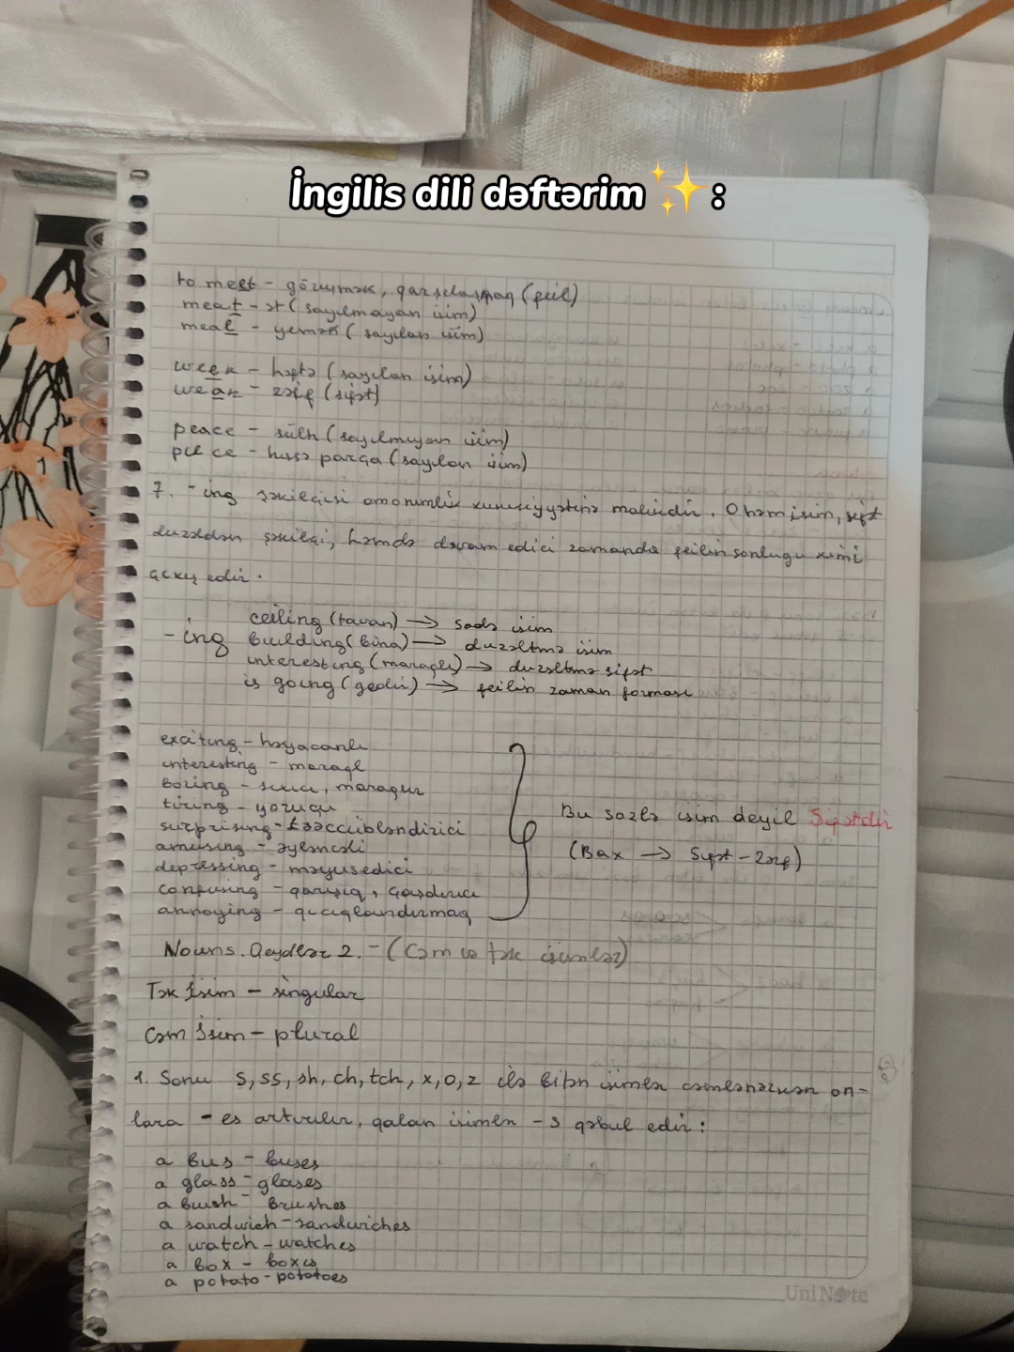 İngilis dili dəftərim✨:
to meet - görüşmək, qarşılaşmaq (feil)
meat - ət (sayılmayan isim)
meal - yemək (sayılan isim)
week - həftə (sayılan isim)
weak - zəif (sifət)
peace - sülh (sayılmayan isim)
piece - hissə parça (sayılan isim)
7. -ing şəkilçisi omonimlik xususiyyətinə malikdir. O həm isim, sifət
duzəldən şəkilçi, həmdə davam edici zamanda feilin sonlugu kimi
çıxış edir.
-ing
ceiling (tavan) → sadə isim
building (bina) → duzəltmə isim
interesting (maraqlı) → duzəltmə sifət
is going (gedir) → feilin zaman forması
exciting - həyacanlı
interesting - maraql
boring - sıxıcı, maraqsız
tiring - yorucu
surprising - təəccübləndirici
amusing - əyləncəli
depressing - məyusedici
confusing - qarışıq, çaşdırıcı
annoying - qıcıqlandırmaq
Bu sozlə isim deyil Sifətdir
(Bax → Sifət - Zərf)
Nouns. Qeydlər 2. - (Cəm və tək isimlər)
Tək İsim - singular
Cəm İsim - plural
1. Sonu s, ss, sh, ch, tch, x, o, z ilə bitən isimlər cəmlənərkən on-
lara -es artırılır, qalan isimlər -s qəbul edir:
a bus - buses
a glass - glases
a bush - brushes
a sandwich - sandwiches
a watch - watches
a box - boxes
a potato - pototoes
UniNote